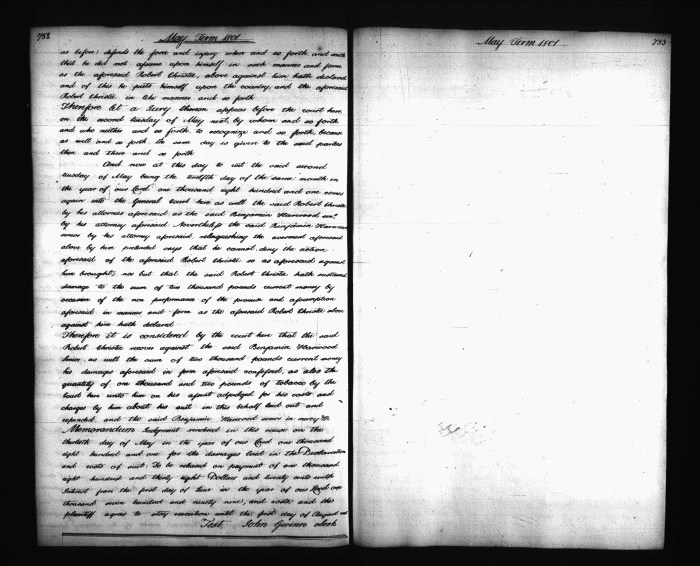 732
May Term 1801
as before, defends the force and injury when and so forth and saith
that he did not assume upon himself in such manner and form
as the aforesaid Robert Christie, above against him hath declared
and of this he puts himself upon the country, and the aforesaid
Robert Christie in like manner and so forth
Therefore let a Jury thereon appear before the court here
on the second tuesday of May next, by whom and so forth
and who neither and so forth to recognize and so forth, because
as well and so forth the same day is given to the said parties
then and there and so forth
And now at this day to wit the said second
tuesday of May being the twelfth day of the same month in
the year of our Lord one thousand eight hundred and one comes
again into the General Court here as well the said Robert Christie
by his attornies aforesaid as the said Benjamin Harwood senr
by his attorney aforesaid Nevertheless the said Benjamin Harwood
senior by his attorney aforesaid, relinquishing the averment aforesaid
above by him pretended says that he cannot deny the action
aforesaid of the aforesaid Robert Christie so as aforesaid against
him brought, nor but that the said Robert Christie hath sustained
damage to the sum of two thousand pounds current money by
occasion of the non performance of the promise and assumption
aforesaid in manner and form as the aforesaid Robert Christie above
against him hath declared
Therefore it is considered by the court here that the said
Robert Christie recover against the said Benjamin Harwood
senior, as well the sum of two thousand pounds current money
his damages aforesaid in form aforesaid confessed, as also the
quantity of one thousand and two pounds of tobacco by the
Court here unto him on his assent adjudged for his costs and
charges by him about his suit in this behalf laid out and
expended, and the said Benjamin Harwood senior in mercy &c
Memorandum Judgment rendered in this cause on the
thirtieth day of May in the year of our Lord one thousand
eight hundred and one for the damages laid in the Declaration
and costs of suit. To be released on payment of one thousand
eight hundred and thirty eight Dollars and twenty cents with
Interest from the first day of June in the year of our Lord one
thousand seven hundred and ninety nine, and costs, and the
plaintiff agrees to stay execution until the first day of August next
Test, John Gwinn clerk
May Term 1801
733